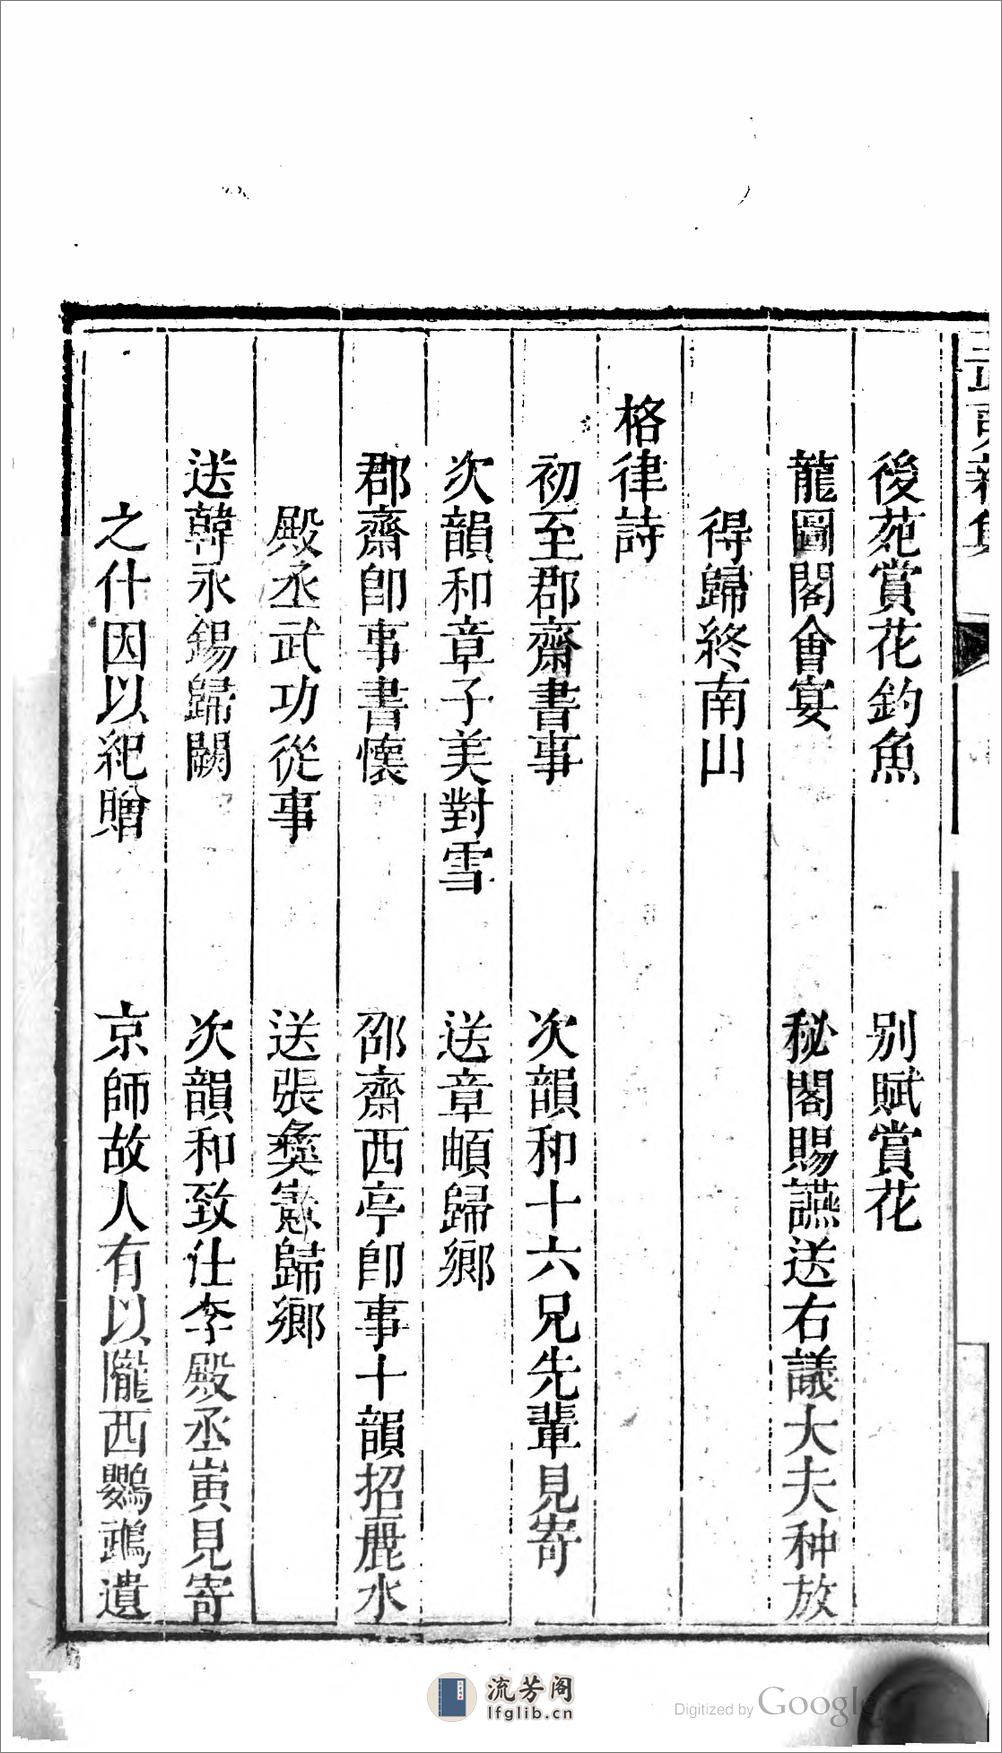 後苑賞花釣魚　別賦賞花
龍圖閣會宴　秘閣賜讌送右議大夫种放
得歸終南山
格律詩
初至郡齋書事　次韻和十六兄先輩見寄
次韻和章子美對雪　送章頔歸鄉
郡齋卽事書懷　郡齋西亭卽事十韻招麗水
殿丞武功從事　送張彝憲歸鄉
送韓永錫歸闕　次韻和致仕李殿丞寅見寄
之什因以紀贈　京師故人有以隴西鸚鵡遺
流芳阁
lfglib.cn
Digitized by Google